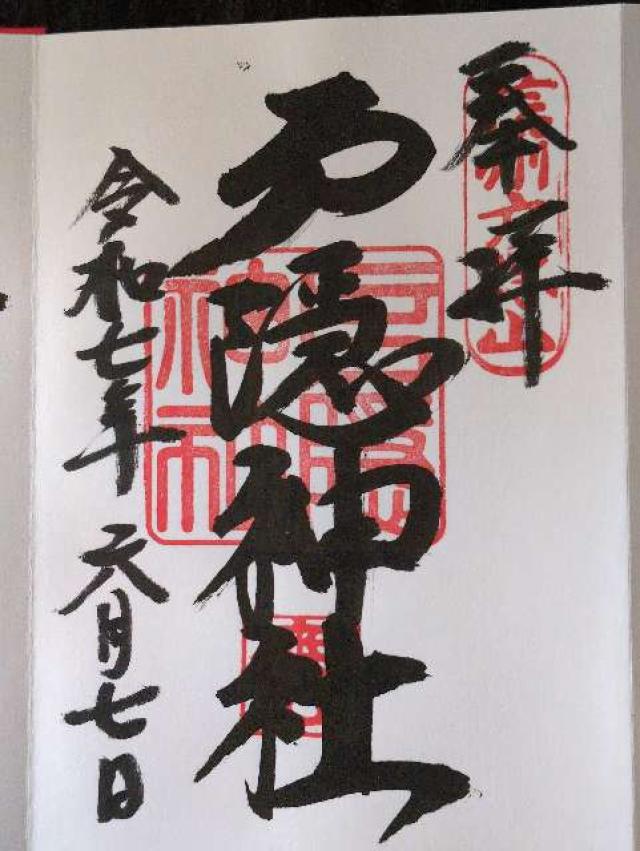 奉拝
戸隠神社
令和七年 六月七日
戸隠神社